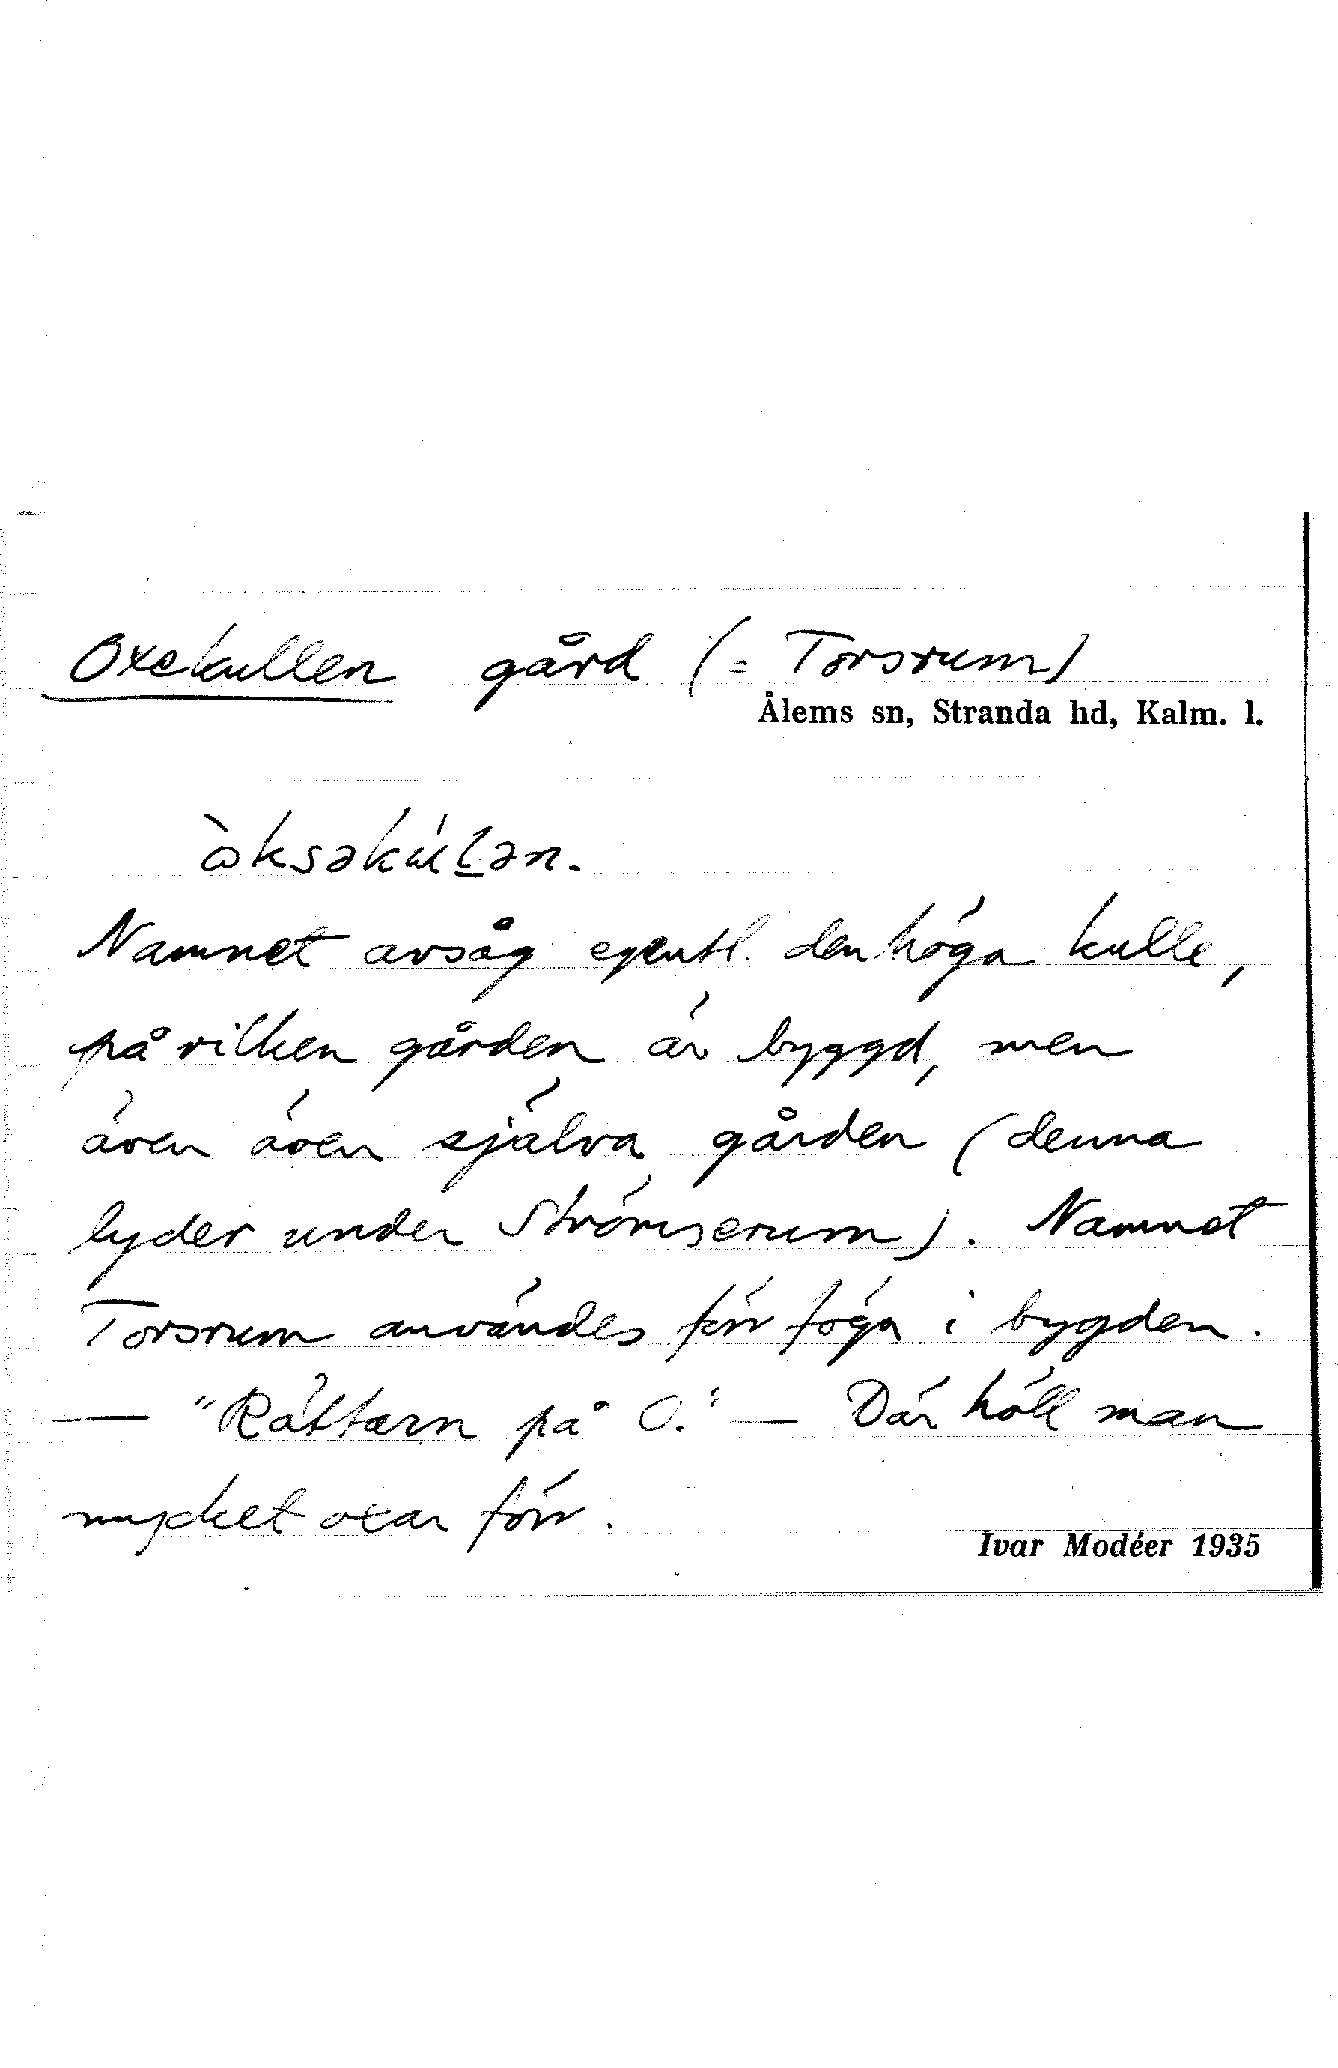 Oxekullen gård (= Torsrum)
Ålems sn, Stranda hd, Kalm. l.
ò̤ksəkúḺən.
Namnet avsåg egentl. den höga kulle,
på vilken gården är byggd, men
även även själva gården (denna
lyder under Strömserum). Namnet
Torsrum användes förr föga i bygden.
— "Rättarn på O." — Där höll man
mycket oxar förr.
Ivar Modéer 1935